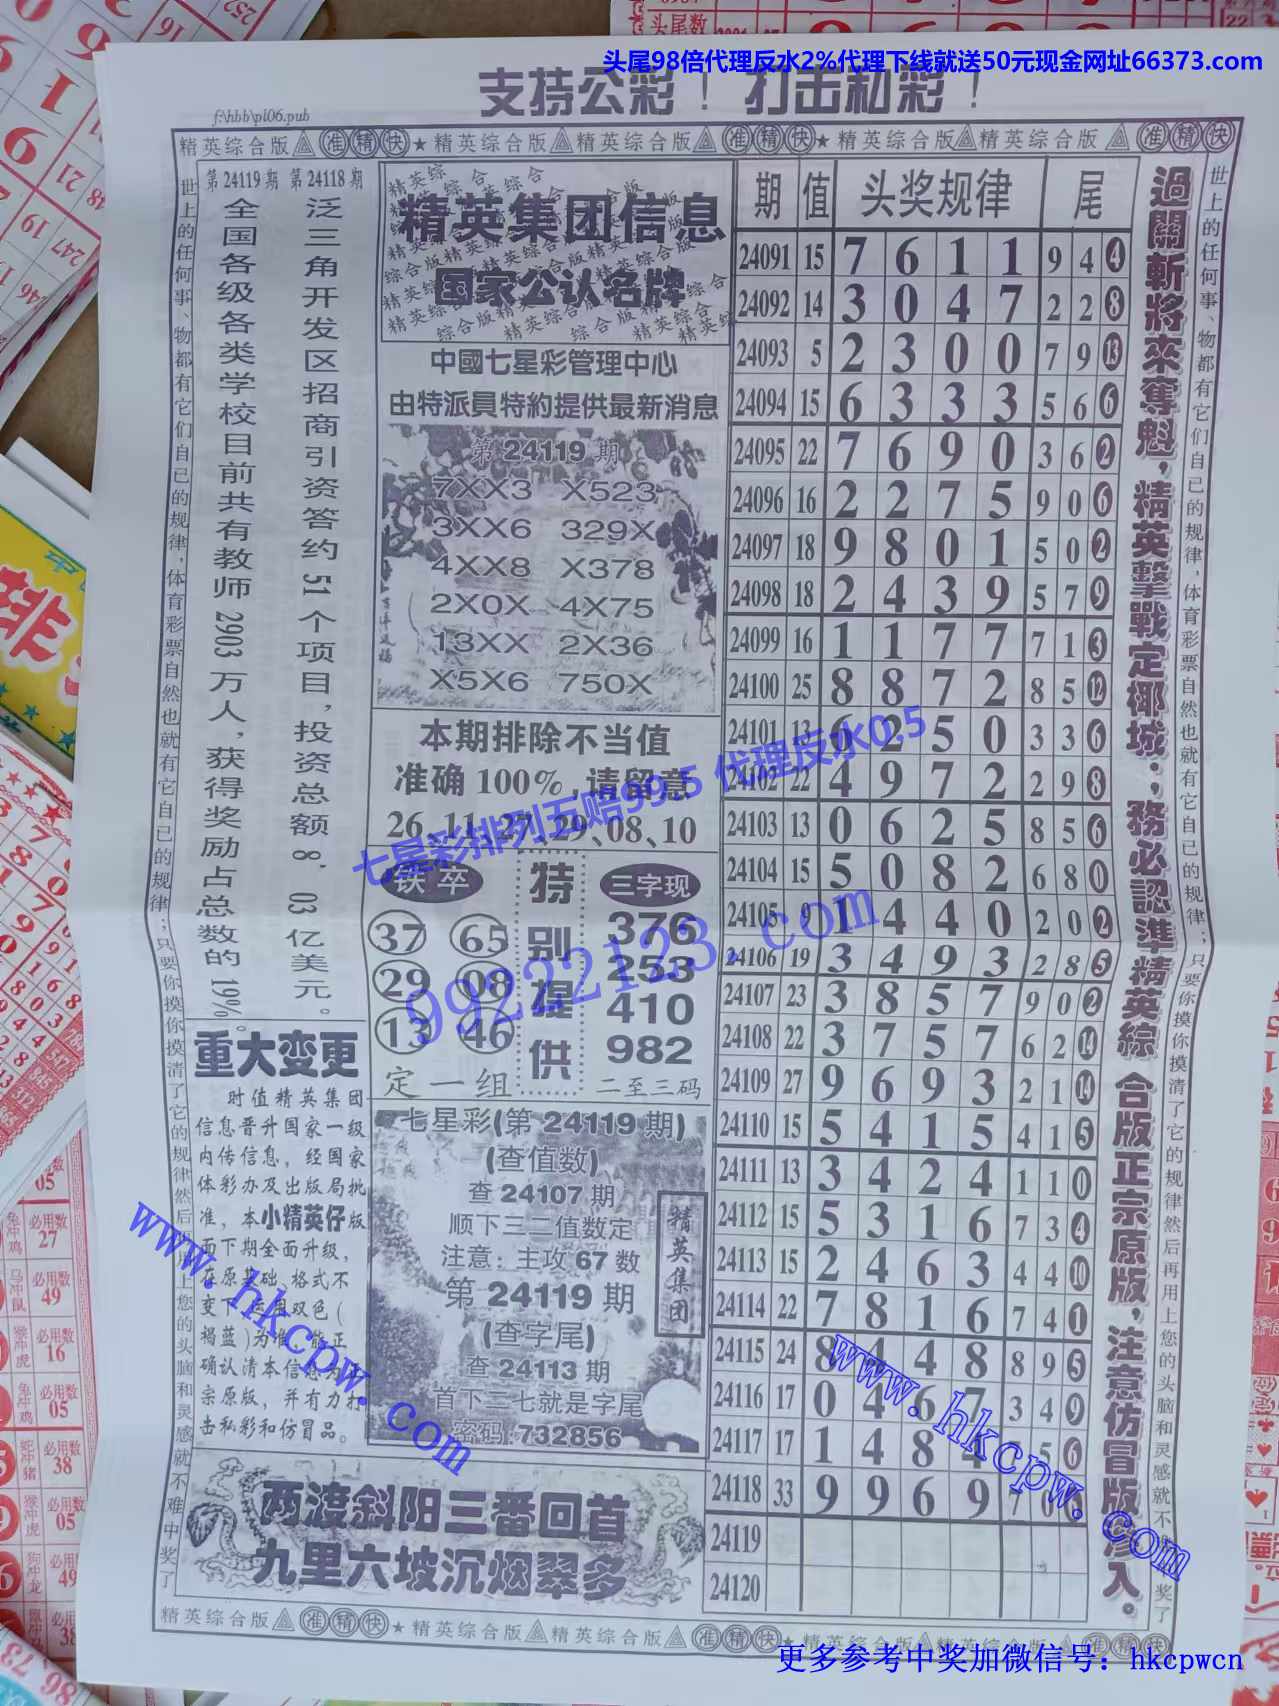 头尾98倍代理反水2%代理下线就送50元现金网址66373.com
支持公彩！打击私彩！
f:\hbb\pl06.pub
精英综合版 准精快 ★ 精英综合版 精英综合版 准精快 ★ 精英综合版 精英综合版 准精快
世上的任何事、物都有它们自已的规律，体育彩票自然也就有它自已的规律；只要你摸你摸清了它的规律然后再用上您的头脑和灵感就不难中奖了
第24119期 第24118期
泛三角开发区招商引资答约51个项目，投资总额8．03亿美元。
全国各级各类学校目前共有教师2903万人，获得奖励占总数的19%。
重大变更
时值精英集团
信息晋升国家一级
内传信息，经国家
体彩办及出版局批
准，本小精英仔版
面下期全面升级，
在原基础、格式不
变下，运用双色（
褐蓝）为准，能正
确认清本信息为正
宗原版，并有力打
击私彩和仿冒品。
精英集团信息
国家公认名牌
中國七星彩管理中心
由特派員特約提供最新消息
第 24119 期
7XX3 X523
3XX6 329X
4XX8 X378
2X0X 4X75
13XX 2X36
X5X6 750X
本期排除不当值
准确 100%,请留意
26、11、27、29、08、10
铁卒
37 65
29 08
13 46
定一组
特别提供
三字现
376
253
410
982
二至三码
七星彩(第 24119 期)
(查值数)
查 24107 期
顺下三二值数定
注意：主攻 67 数
第 24119 期
(查字尾)
查 24113 期
首下二七就是字尾
密码:732856
精英集团
两渡斜阳三番回首
九里六坡沉烟翠多
期 值 头奖规律 尾
24091 15 7 6 1 1 9 4 4
24092 14 3 0 4 7 2 2 8
24093 5 2 3 0 0 7 9 13
24094 15 6 3 3 3 5 6 6
24095 22 7 6 9 0 3 6 2
24096 16 2 2 7 5 9 0 6
24097 18 9 8 0 1 5 0 2
24098 18 2 4 3 9 5 7 9
24099 16 1 1 7 7 7 1 3
24100 25 8 8 7 2 8 5 12
24101 13 6 2 5 0 3 3 6
24102 22 4 9 7 2 2 9 8
24103 13 0 6 2 5 8 5 6
24104 15 5 0 8 2 6 8 0
24105 9 1 4 4 0 2 0 2
24106 19 3 4 9 3 2 8 5
24107 23 3 8 5 7 9 0 2
24108 22 3 7 5 7 6 2 14
24109 27 9 6 9 3 2 1 14
24110 15 5 4 1 5 4 1 5
24111 13 3 4 2 4 1 1 0
24112 15 5 3 1 6 7 3 4
24113 15 2 4 6 3 4 4 10
24114 22 7 8 1 6 7 4 1
24115 24 8 4 4 8 8 9 5
24116 17 0 4 6 7 3 4 9
24117 17 1 4 8 4 5 6
24118 33 9 9 6 9 7 0
24119
24120
過關斬將來奪魁，精英擊戰定椰城；務必認準精英綜合版正宗原版，注意仿冒版渗入。
世上的任何事、物都有它们自已的规律，体育彩票自然也就有它自已的规律；只要你摸你摸清了它的规律然后再用上您的头脑和灵感就不难中奖了
精英综合版 准精快 ★ 精英综合版 精英综合版 准精快 ★ 精英综合版 精英综合版 准精快
七星彩排列五赔99.5 代理反水0.5
99222123.com
www.hkcpw.com
www.hkcpw.com
更多参考中奖加微信号：hkcpwcn